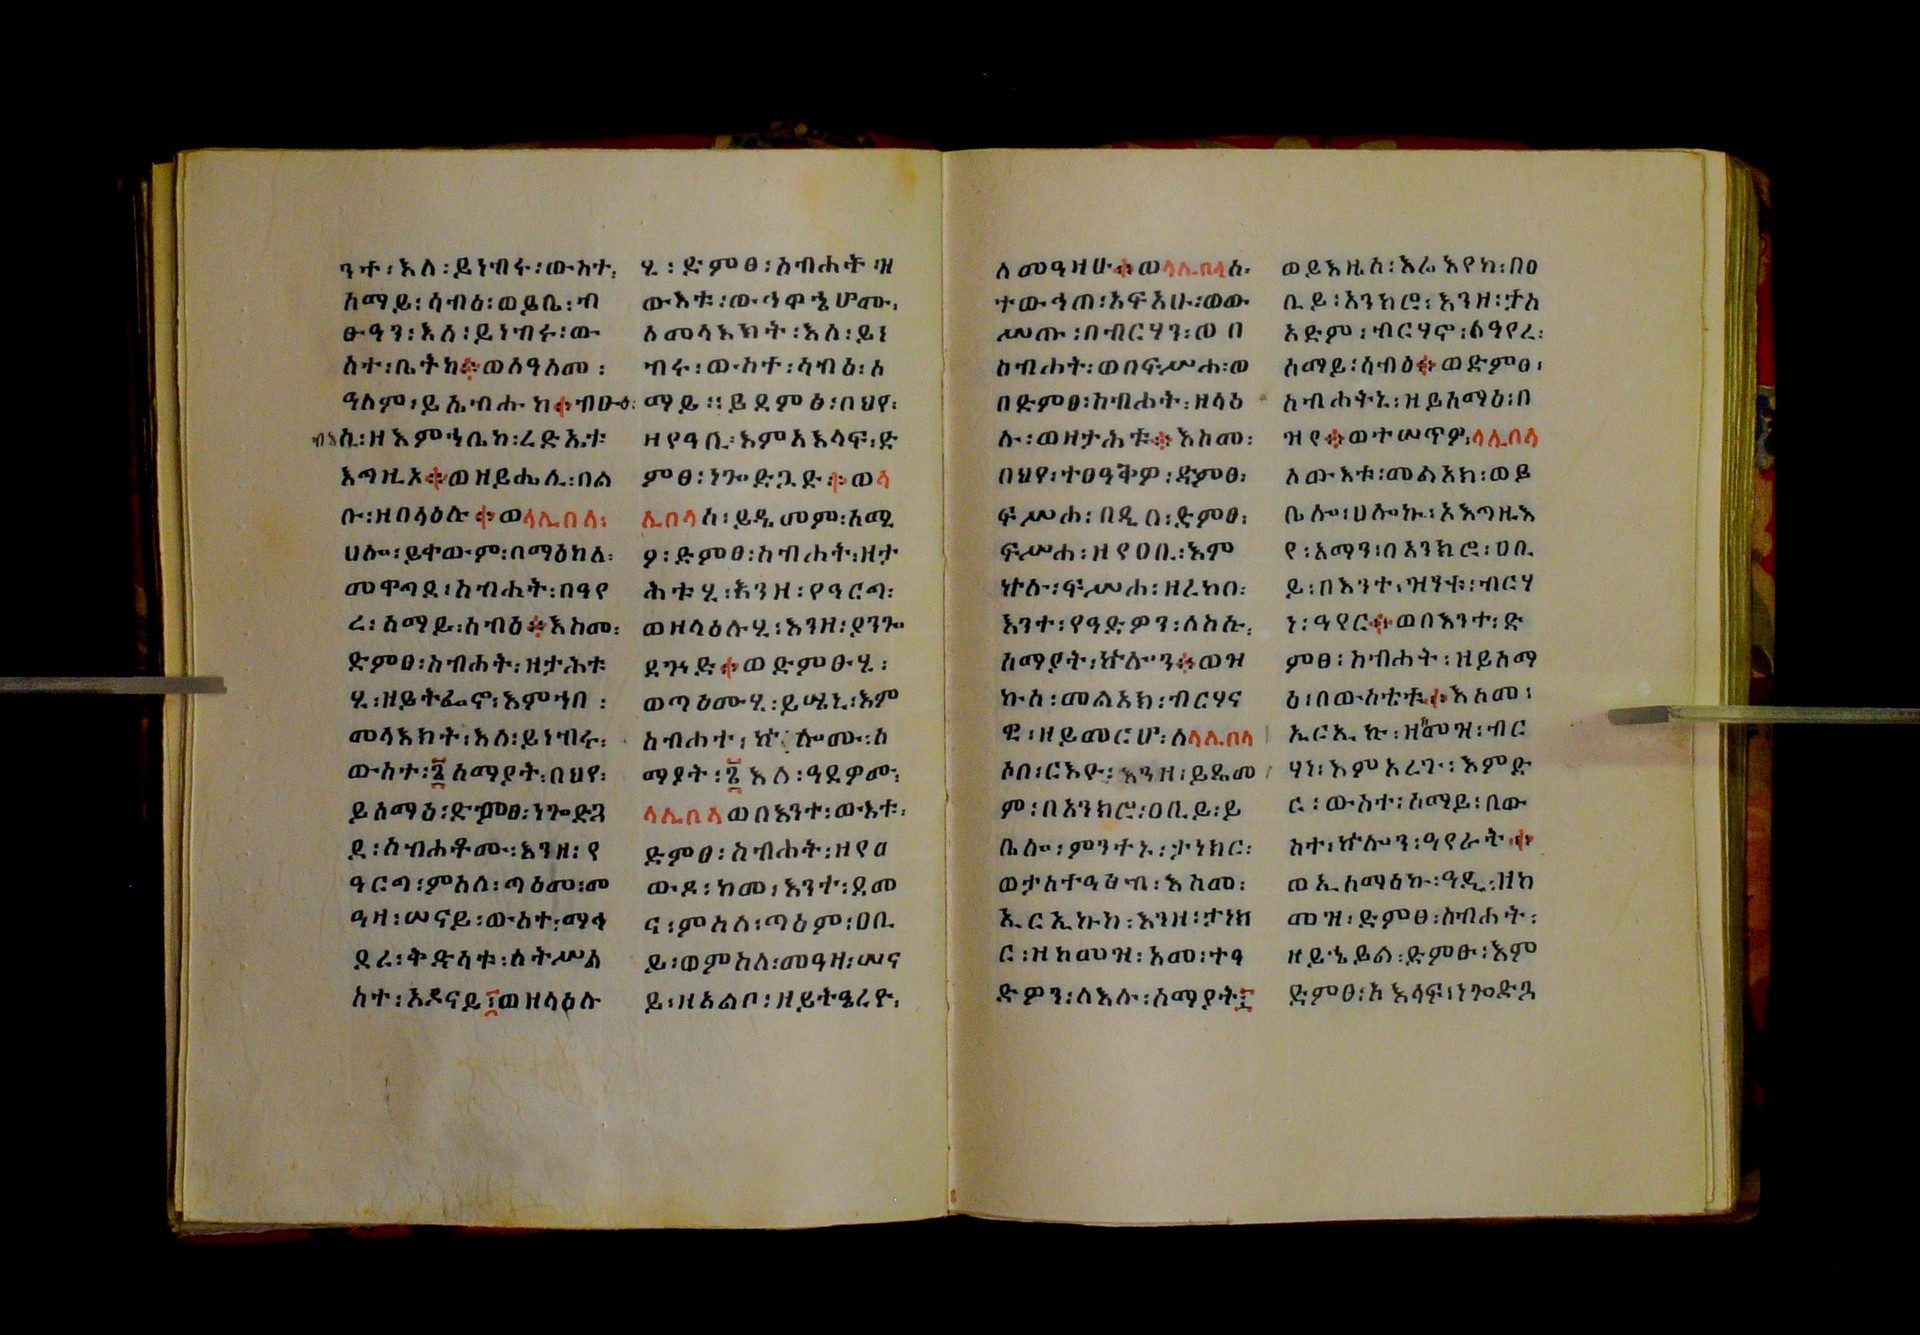 ንተ፡እለ፡ይነብሩ፡ውስተ፡
ሰማይ፡ሳብዕ፡ወይቤ፡ብ
ፁዓን፡እለ፡ይነብሩ፡ው
ስተ፡ቤትከ፨ወለዓለመ፡
ዓለም፡ይሴብሑከ፨ብፁዕ፡
ብእሲ፡ዘእምኀቤከ፡ረድኤቱ
እግዚኦ፨ወዘይሔሊ፡በል
ቡ፡ዘበላዕሉ፨ወላሊበላ፡
ሀሎ፡ይቀውም፡በማዕከለ፡
መዋግደ፡ስብሐት፡በዓየ
ረ፡ሰማይ፡ሳብዕ፨እስመ፡
ድምፀ፡ስብሐት፡ዘታሕቱ
ሂ፡ዘይትፌኖ፡እምኀበ፡
መላእክት፡እለ፡ይነብሩ፡
ውስተ፡፯ሰማያት፡በህየ፡
ይሰማዕ፡ድምፀ፡ነጐድጓ
ደ፡ስብሐቶሙ፡እንዘ፡የ
ዓርግ፡ምስለ፡ጣዕመ፡መ
ዓዛ፡ሠናይ፡ውስተ፡ማኅ
ደረ፡ቅድሳቱ፡ለትሥል
ስተ፡አዶናይ፤ወዘላዕሉ
ሂ፡ድምፀ፡ስብሐት፡ዝ
ውእቱ፡ውኅዋኄሆሙ፡
ለመላእክት፡እለ፡ይነ
ብሩ፡ውስተ፡ሳብዕ፡ሰ
ማይ፡፡ይደምፅ፡በህየ፡
ዘየዓቢ፡እምአእላፍ፡ድ
ምፀ፡ነጐድጓድ፨ወላ
ሊበላሰ፡ይዴመም፡አሚ
ሃ፡ድምፀ፡ስብሐት፡ዘታ
ሕቱሂ፡እንዘ፡የዓርግ፡
ወዘላዕሉሂ፡እንዘ፡ያንጐ
ደጕድ፨ወድምፁሂ፡
ወጣዕሙሂ፡ይሤኒ፡እም
ስብሐተ፡ኵሎሙ፡ሰ
ማያት፡፯እለ፡ዓደዎሙ፡
ላሊበላወበእንተ፡ውእቱ፡
ድምፀ፡ስብሐት፡ዘየዐ
ውዶ፡ከመ፡እንተ፡ደመ
ና፡ምስለ፡ጣዕም፡ዐቢ
ይ፡ወምስለ፡መዓዛ፡ሠና
ይ፡ዘአልቦ፡ዘይትዔረዮ፡
ለመዓዛሁ፨ወላሊበላሰ፡
ተውኅጠ፡አፍአሁ፡ወው
ሥጡ፡በብርሃን፡ወበ
ስብሐት፡ወበፍሥሐ፡ወ
በድምፀ፡ስብሐት፡ዘላዕ
ሉ፡ወዘታሕቱ፨እስመ፡
በህየ፡ተዐዓቅዎ፡ድምፀ፡
ፍሥሐ፡በዲበ፡ድምፀ፡
ፍሥሐ፡ዘየዐቢ፡እም
ኵሉ፡ፍሥሐ፡ዘረከበ፡
እንተ፡የዓድዎን፡ለእሉ፡
ሰማያት፡ኵሎን፨ወዝ
ኩሰ፡መልአክ፡ብርሃና
ዊ፡ዘይመርሆ፡ለላሊበላ
ሶበ፡ርእዮ፡እንዘ፡ይዴመ
ም፡በአንክሮ፡ዐቢይ፡ይ
ቤሎ፡ምንተኑ፡ታነክር፡
ወታስተዓፅብ፡እስመ፡
ኢርኢኩከ፡እንዘ፡ታነክ
ር፡ዝከመዝ፡አመ፡ተዓ
ድዎን፡ለእሉ፡ሰማያት፤
ወይእዜሰ፡እሬእየከ፡በዐ
ቢይ፡አንክሮ፡እንዘ፡ታስ
አድም፡ብርሃኖ፡ለዓየረ፡
ሰማይ፡ሳብዕ፨ወድምፀ፡
ስብሐትኒ፡ዘይሰማዕ፡በ
ዝየ፨ወተሠጥዎ፡ላሊበላ
ለውእቱ፡መልአክ፡ወይ
ቤሎ፡ሀሎኩ፡ኦእግዚእ
የ፡አማን፡በአንክሮ፡ዐቢ
ይ፡በእንተ፡ዝንቱ፡ብርሃ
ነ፡ዓየር፨ወበእንተ፡ድ
ምፀ፡ስብሐት፡ዘይሰማ
ዕ፡በውስቴቱ፨እስመ፡
ኢርኢኩ፡ዘከመዝ፡ብር
ሃነ፡እምአረጉ፡እምድ
ር፡ውስተ፡ሰማይ፡በው
ስተ፡ኵሎን፡ዓየራት፨
ወኢሰማዕኩ፡ዓዲ፡ዘከ
መዝ፡ድምፀ፡ስብሐት፡
ዘይኄይል፡ድምፁ፡እም
ድምፀ፡አእላፍ፡ነጐድጓ